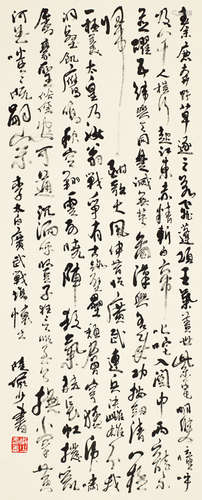 秦鹿奔野草逐之若飛蓬項王氣蓋世紫電明雙瞳呼
吸八千人橫行起江東赤精斬白帝叱咤入關中兩龍不
並躍五緯與天同楚滅無英圖漢興有成功按劍清八極
歸酣歌大風伊昔臨廣武連兵決雌雄分我
一杯羹太皇乃汝翁戰爭有古跡壁壘頹層穹猛虎嘯
洞壑飢鷹鳴秋空翔雲列曉陣殺氣赫長虹撥亂
屬豪聖俗儒安可通沉湎呼豎子狂言非至公撫掌黃
河曲嗤嗤阮嗣宗 李太白廣武戰場懷古 陸儼少書